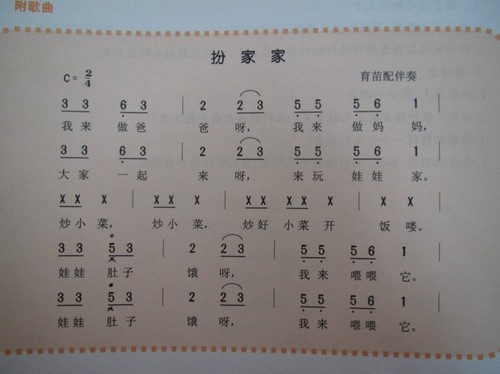 附歌曲
扮家家
C=2/4 育苗配伴奏
3 3 6 3 | 2 2 3 | 5 5 5 6 1
我来 做爸 爸 呀, 我来 做妈 妈,
3 3 6 3 | 2 2 3 | 5 5 5 6 1
大家 一起 来 呀, 来玩 娃娃 家。
X X X | X X X | X X X X | X X
炒小菜, 炒小菜, 炒好 小菜 开 饭 喽。
3 3 5 3 | 2 2 3 | 5 5 5 6 1
娃娃 肚子 饿 呀, 我来 喂喂 它。
3 3 5 3 | 2 2 3 | 5 5 5 6 1
娃娃 肚子 饿 呀, 我来 喂喂 它。